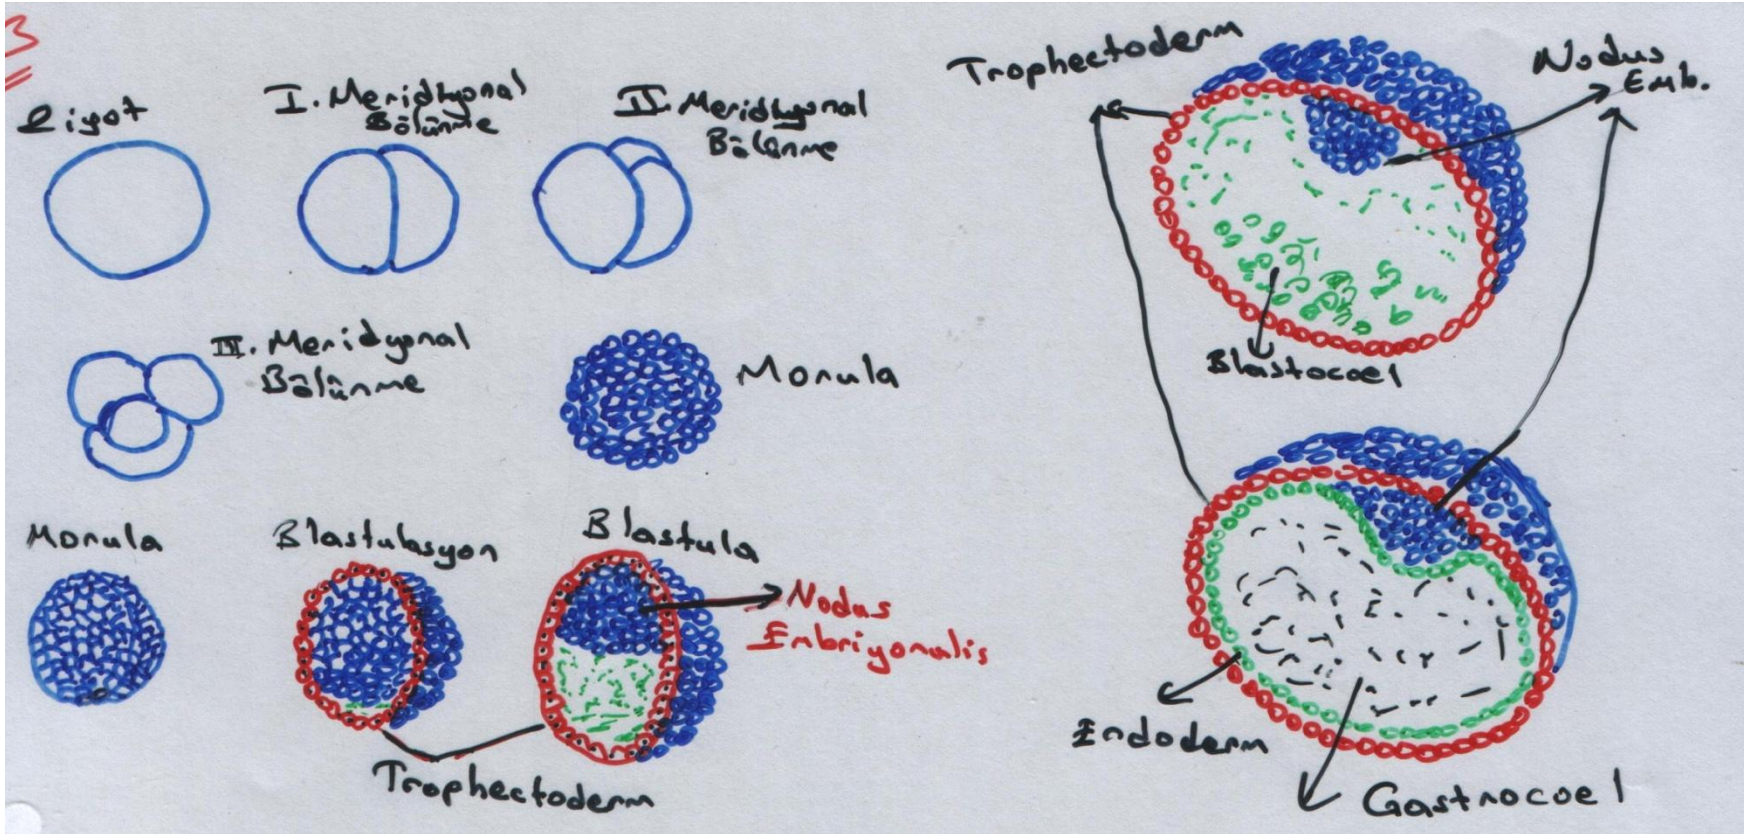 3
Zigot
I. Meridyonal
Bölünme
II. Meridyonal
Bölünme
III. Meridyonal
Bölünme
Morula
Morula
Blastulasyon
Blastula
Nodus
Embriyonalis
Trophectoderm
Trophectoderm
Nodus
Emb.
Blastocoel
Endoderm
Gastrocoel